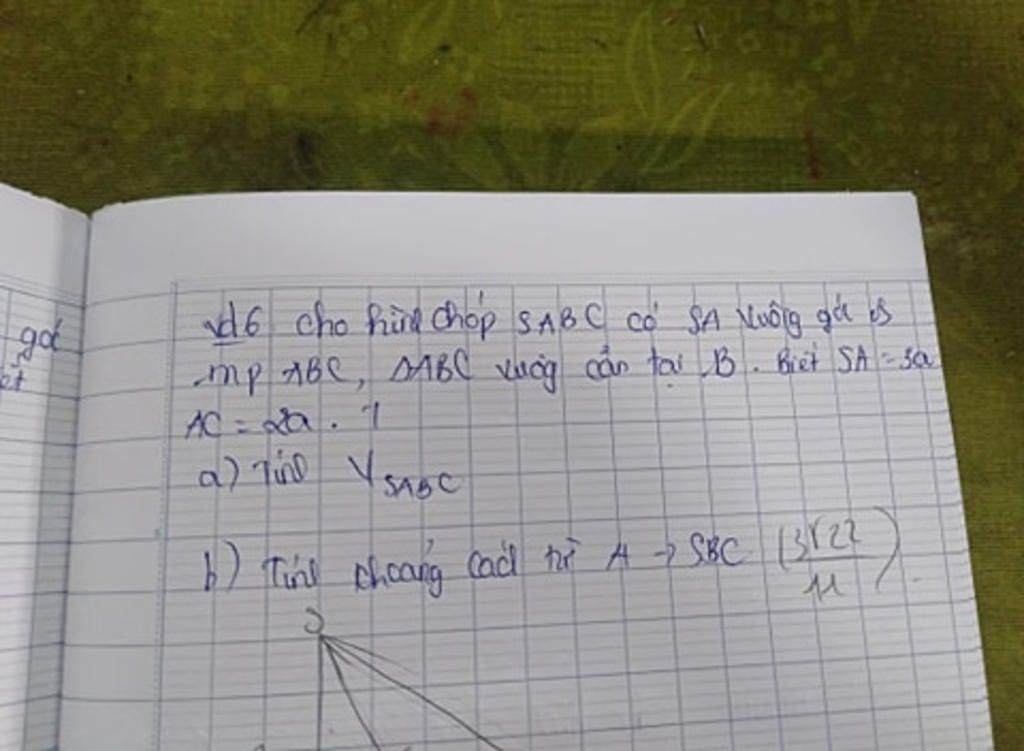 gó
vd6 cho hình chóp SABC có SA vuông gó vs
mp ABC, ΔABC vuông cân tại B. Biết SA = 3a
AC = 2a. 1
a) Tính V SABC
b) Tính khoảng cách từ A → SBC (3√22 / 11)
S